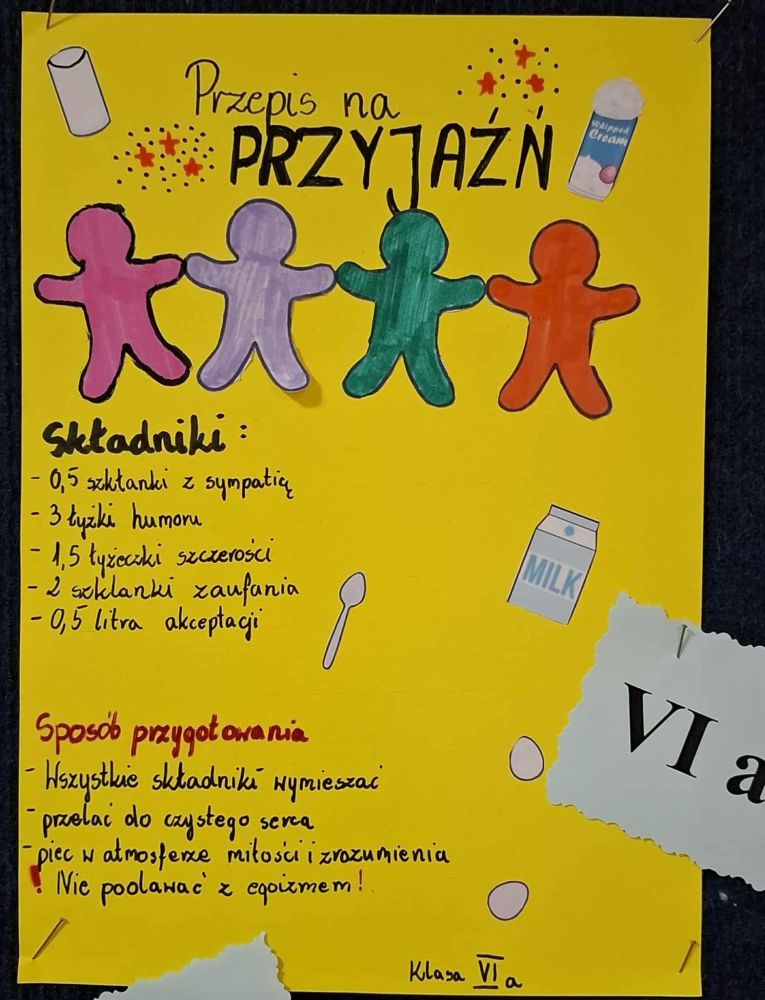 Przepis na
PRZYJAŹŃ
Whipped
Cream
Składniki:
- 0,5 szklanki z sympatią
- 3 łyżki humoru
- 1,5 łyżeczki szczerości
- 2 szklanki zaufania
- 0,5 litra akceptacji
MILK
VI a
Sposób przygotowania
- Wszystkie składniki wymieszać
- przelać do czystego serca
- piec w atmosferze miłości i zrozumienia
! Nie podawać z egoizmem!
Klasa VI a